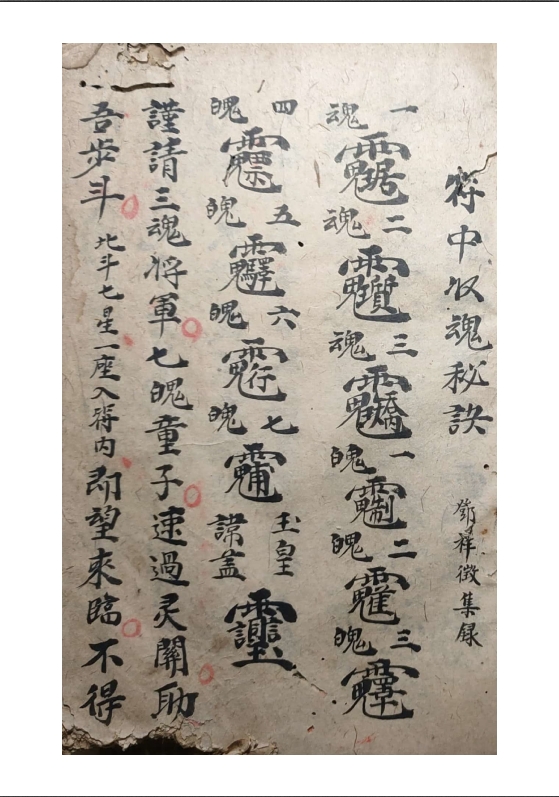 符中收魂秘訣 鄧祥徵集録
一魂 二魂 三魂 一魄 二魄 三魄
四魄 五魄 六魄 七魄 玉皇諱蓋
謹請三魂将軍七魄童子速過灵關助
吾步斗北斗七星一座入符内即望來臨不得